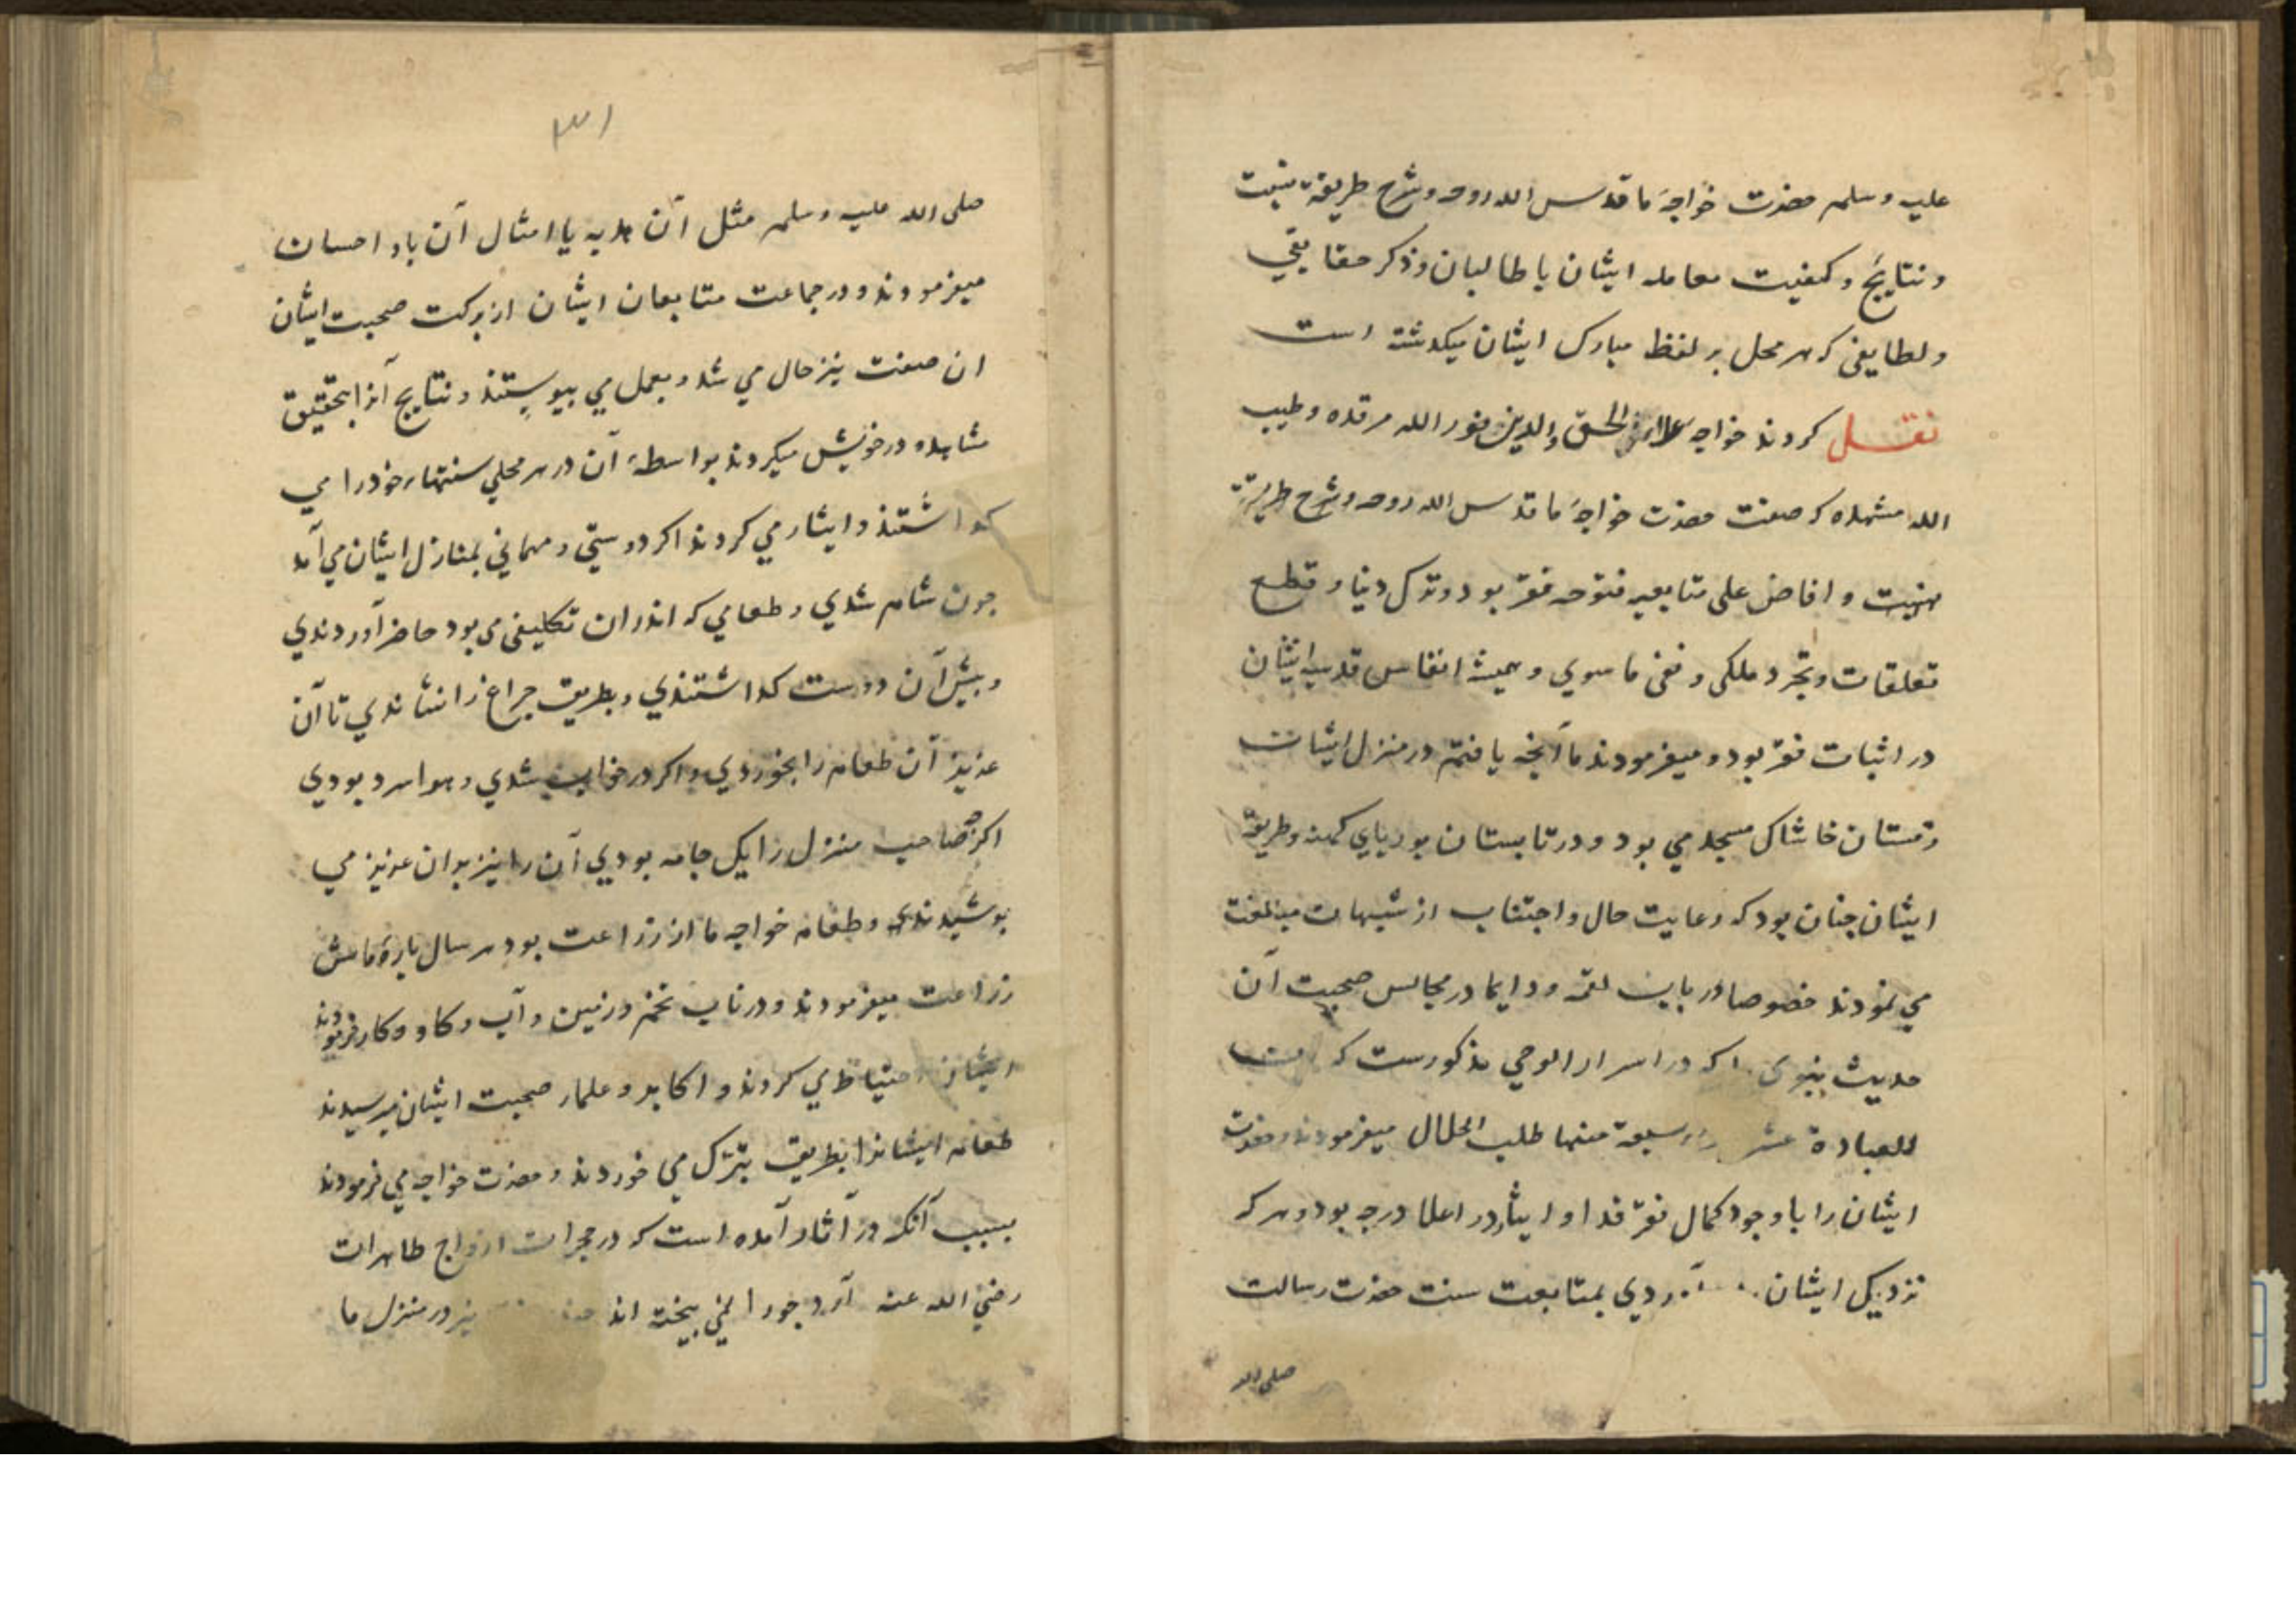 علیه وسلم حضرت خواجهٔ ما قدس الله روحه وشرح طریقة
ونتایج وکیفیت معامله ایشان با طالبان وذکر حقایقی
ولطایفی که هر محل بر لفظ مبارک ایشان میکذشته است
نقل کردند خواجه علاء الحق والدین نور الله مرقده وطیب
الله مشهده که صفت حضرت خواجهٔ ما قدس الله روحه وشرح طریقته
وافاض علی متابعیه فتوحه فقر بود وترک دنیا وقطع
تعلقات وتجرد ملکی ونفی ما سوی وهمیشه انفاس قدسیه ایشان
در اثبات فقر بود ومیفرمودند ما آنچه یافتیم در منزل ایشان
زمستان خاشاک مسجد می بود ودر تابستان بوریای کهنه وطریقهٔ
ایشان چنان بود که رعایت حال واجتناب از شبهات مبالغت
می نمودند خصوصا در باب لقمه ودایما در مجالس صحبت آن
حدیث نبوی را که در اسرار الوحی مذکورست که
العبادة عشرة تسعة منها طلب الحلال میفرمودند وحضرت
ایشان را با وجود کمال فقر فدا وایثار در اعلا درجه بود وهر که
نزدیک ایشان آوردی بمتابعت سنت حضرت رسالت
صلی الله
۳۱
صلی الله علیه وسلم مثل آن هدیه یا امثال آن باو احسان
میفرمودند ودر جماعت متابعان ایشان از برکت صحبت ایشان
ان صفت نیز حال می شد وبعمل می پیوستند ونتایج آنرا بتحقیق
مشاهده در خویش میکردند بواسطهٔ آن در هر محلی خود را می
کذاشتند وایثار می کردند اکر دوستی ومهمانی بمنازل ایشان می آمد
چون شام شدی وطعامی که اندران تکلیفی می بود حاضر آوردندی
وپیش آن دوست کذاشتندی وبطریق چراغ را نشاندی تا آن
عزیز آن طعام را بخوردی واکر در خواب شدی وهوا سرد بودی
اکر صاحب منزل را یک جامه بودی آن را نیز بران عزیز می
پوشیدندی وطعام خواجه ما از زراعت بود هر سال پارهٔ ماش
زراعت میفرمودند ودر باب تخم وزمین وآب وکاو وکار فرمودند
ایشان احتیاط می کردند واکابر وعلما بر صحبت ایشان میرسیدند
طعام ایشانرا بطریق تبرک می خوردند وحضرت خواجه می فرمودند
بسبب آنکه در آثار آمده است که در حجرات ازواج طاهرات
رضی الله عنه آرد جو را نمی بیخته اند در منزل ما